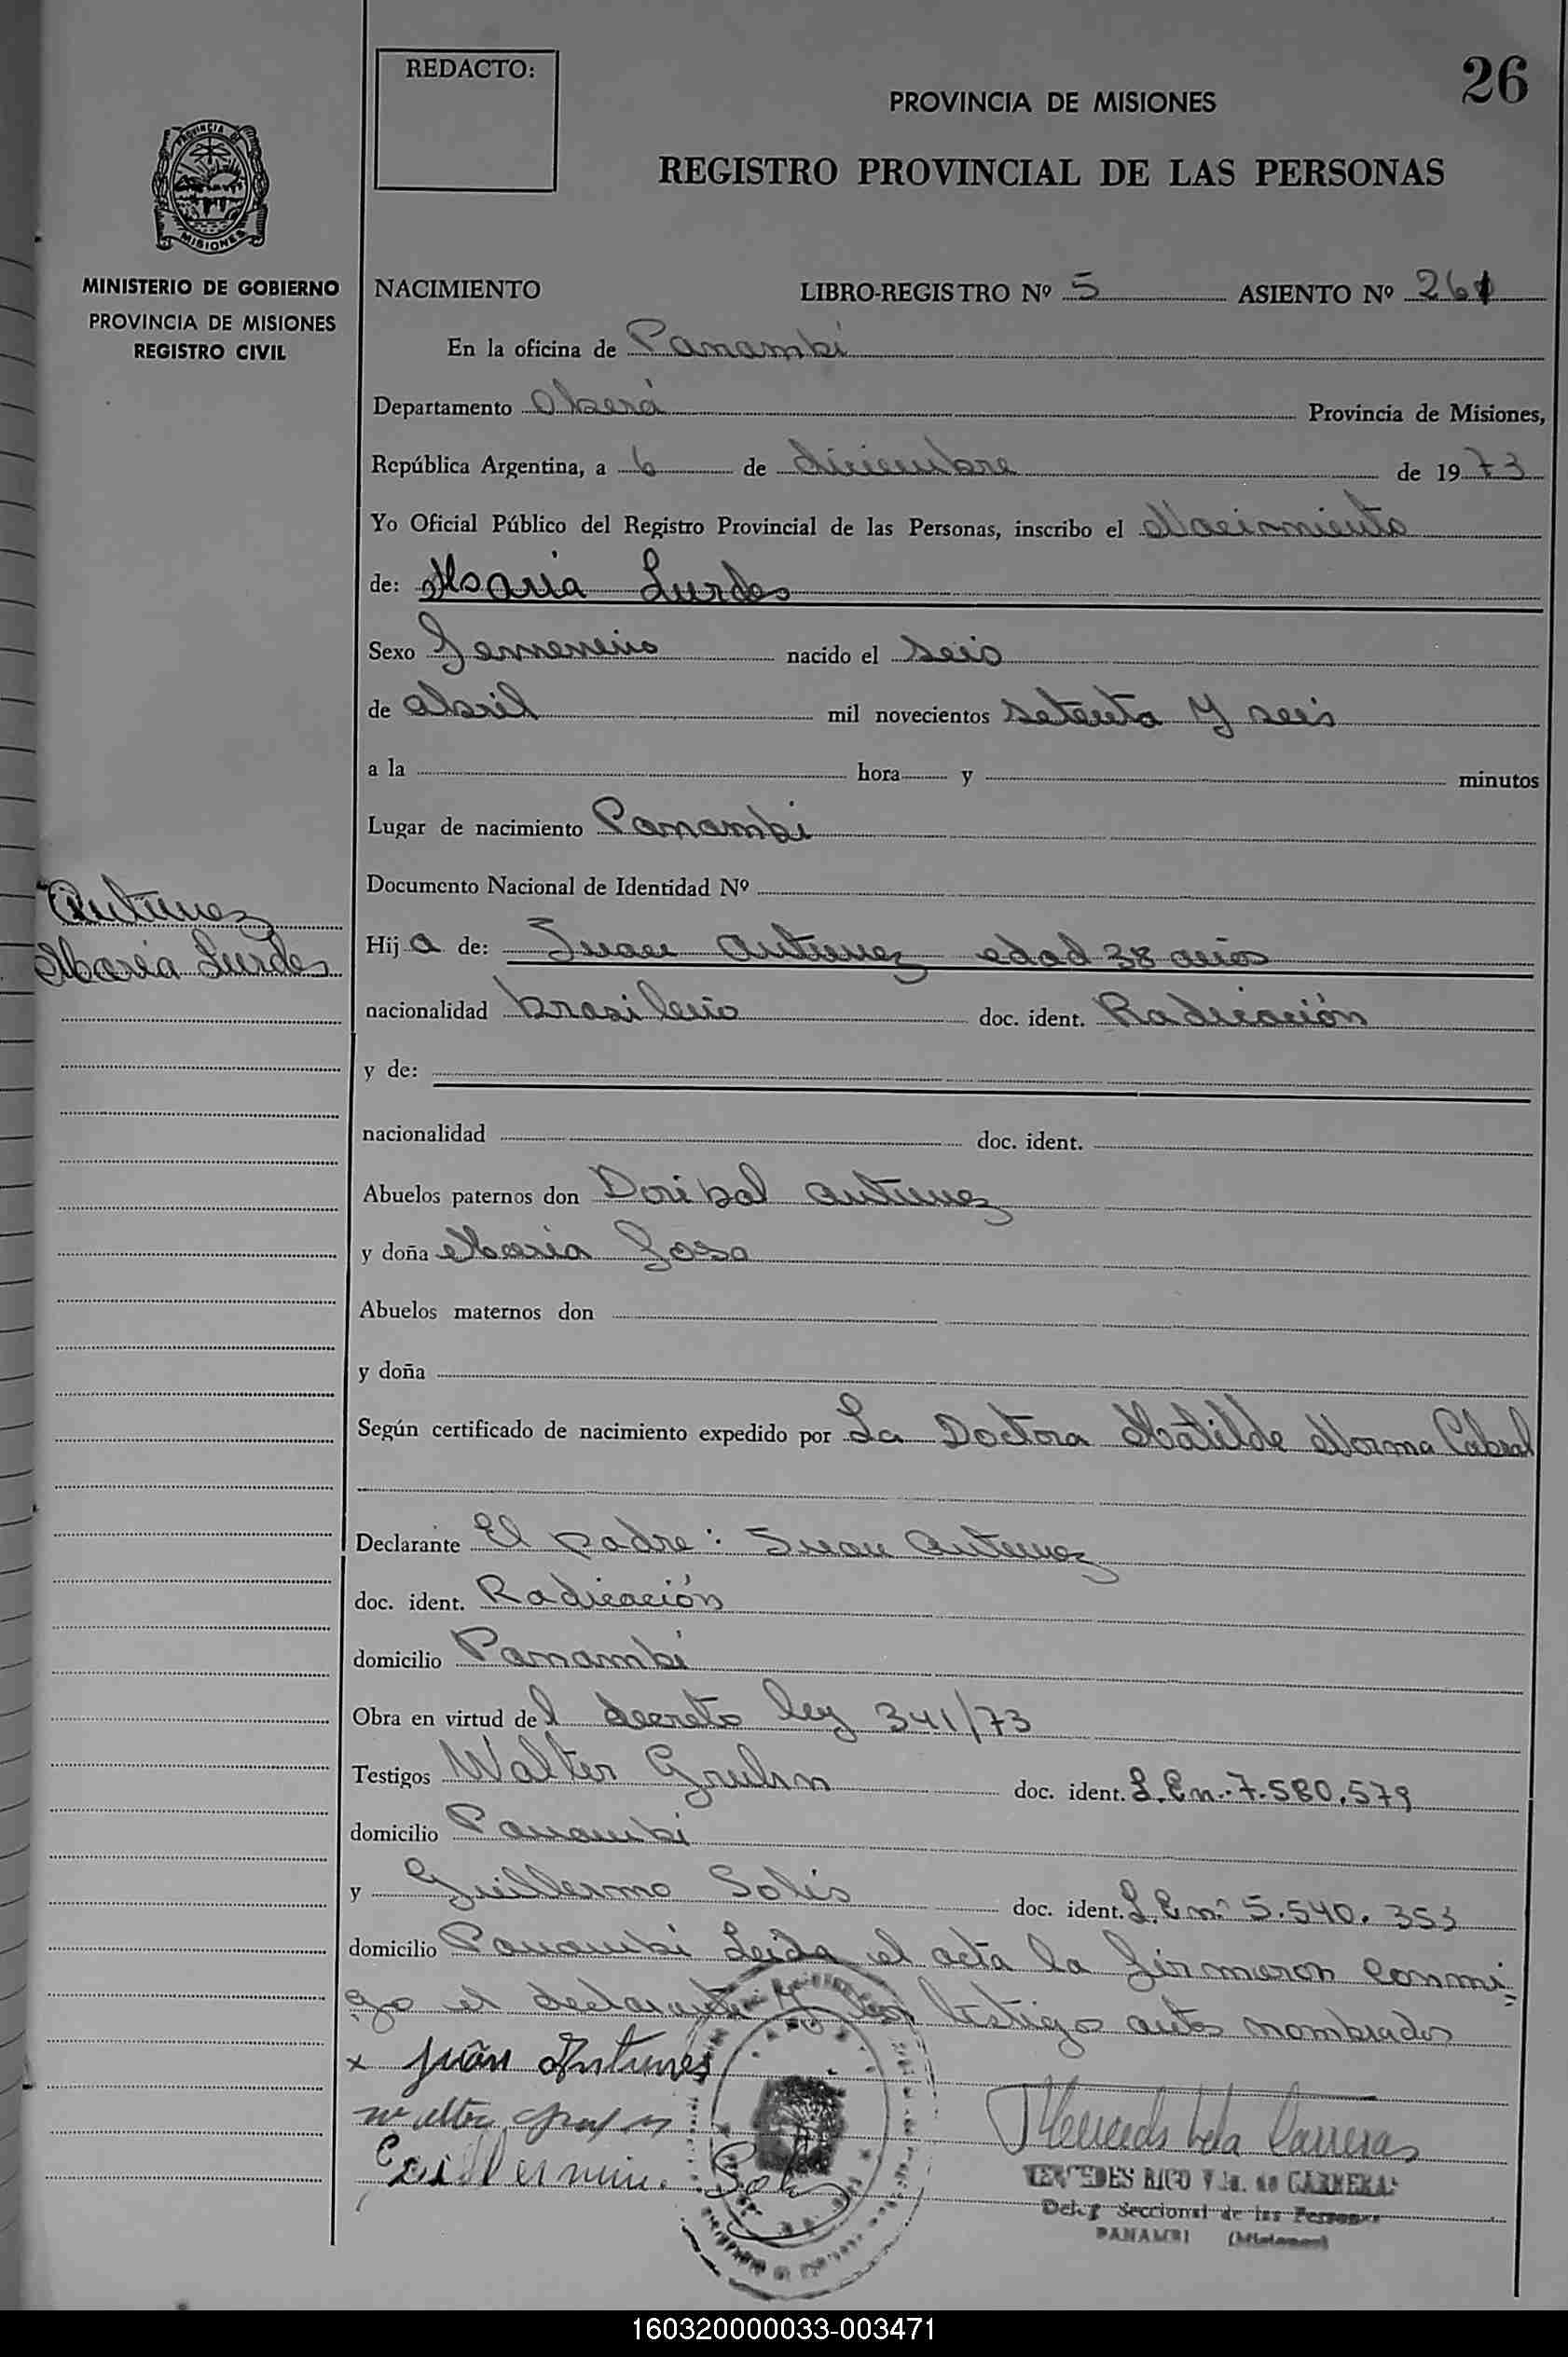 REDACTO:
26
PROVINCIA DE MISIONES
REGISTRO PROVINCIAL DE LAS PERSONAS
PROVINCIA DE
MISIONES
MINISTERIO DE GOBIERNO
PROVINCIA DE MISIONES
REGISTRO CIVIL
NACIMIENTO LIBRO-REGISTRO Nº 5 ASIENTO Nº 261
En la oficina de Panambí
Departamento Oberá Provincia de Misiones,
República Argentina, a 6 de diciembre de 1973
Yo Oficial Público del Registro Provincial de las Personas, inscribo el Nacimiento
de: Maria Lurdes
Sexo Femenino nacido el seis
de abril mil novecientos setenta y seis
a la hora y minutos
Lugar de nacimiento Panambí
Documento Nacional de Identidad Nº
Antunez
Maria Lurdes
Hija de: Juan Antunez edad 38 años
nacionalidad brasileño doc. ident. Radicación
y de:
nacionalidad doc. ident.
Abuelos paternos don Doribal Antunez
y doña Maria
Abuelos maternos don
y doña
Según certificado de nacimiento expedido por La Doctora Matilde Norma Cabral
Declarante El padre: Juan Antunez
doc. ident. Radicación
domicilio Panambí
Obra en virtud del decreto ley 341/73
Testigos Walter Gruhn doc. ident. L.E.n.. 7.580.579
domicilio Panambi
y Guillermo Solis doc. ident. L.E nº 5.540.353
domicilio Panambi Leida el acta la firmaron conmi=
go el declarante y los testigos antes nombrados
x Juãn Antunes
Mercedes Vda Carreras
MERCEDES RICO Vda. de CARRERAS
Del. Seccional de las Personas
PANAMBI (Misiones)
160320000033-003471